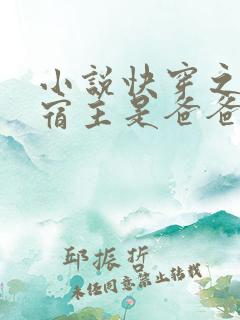 小说快穿之
宿主是爸爸
邱振哲
未经同意禁止转载